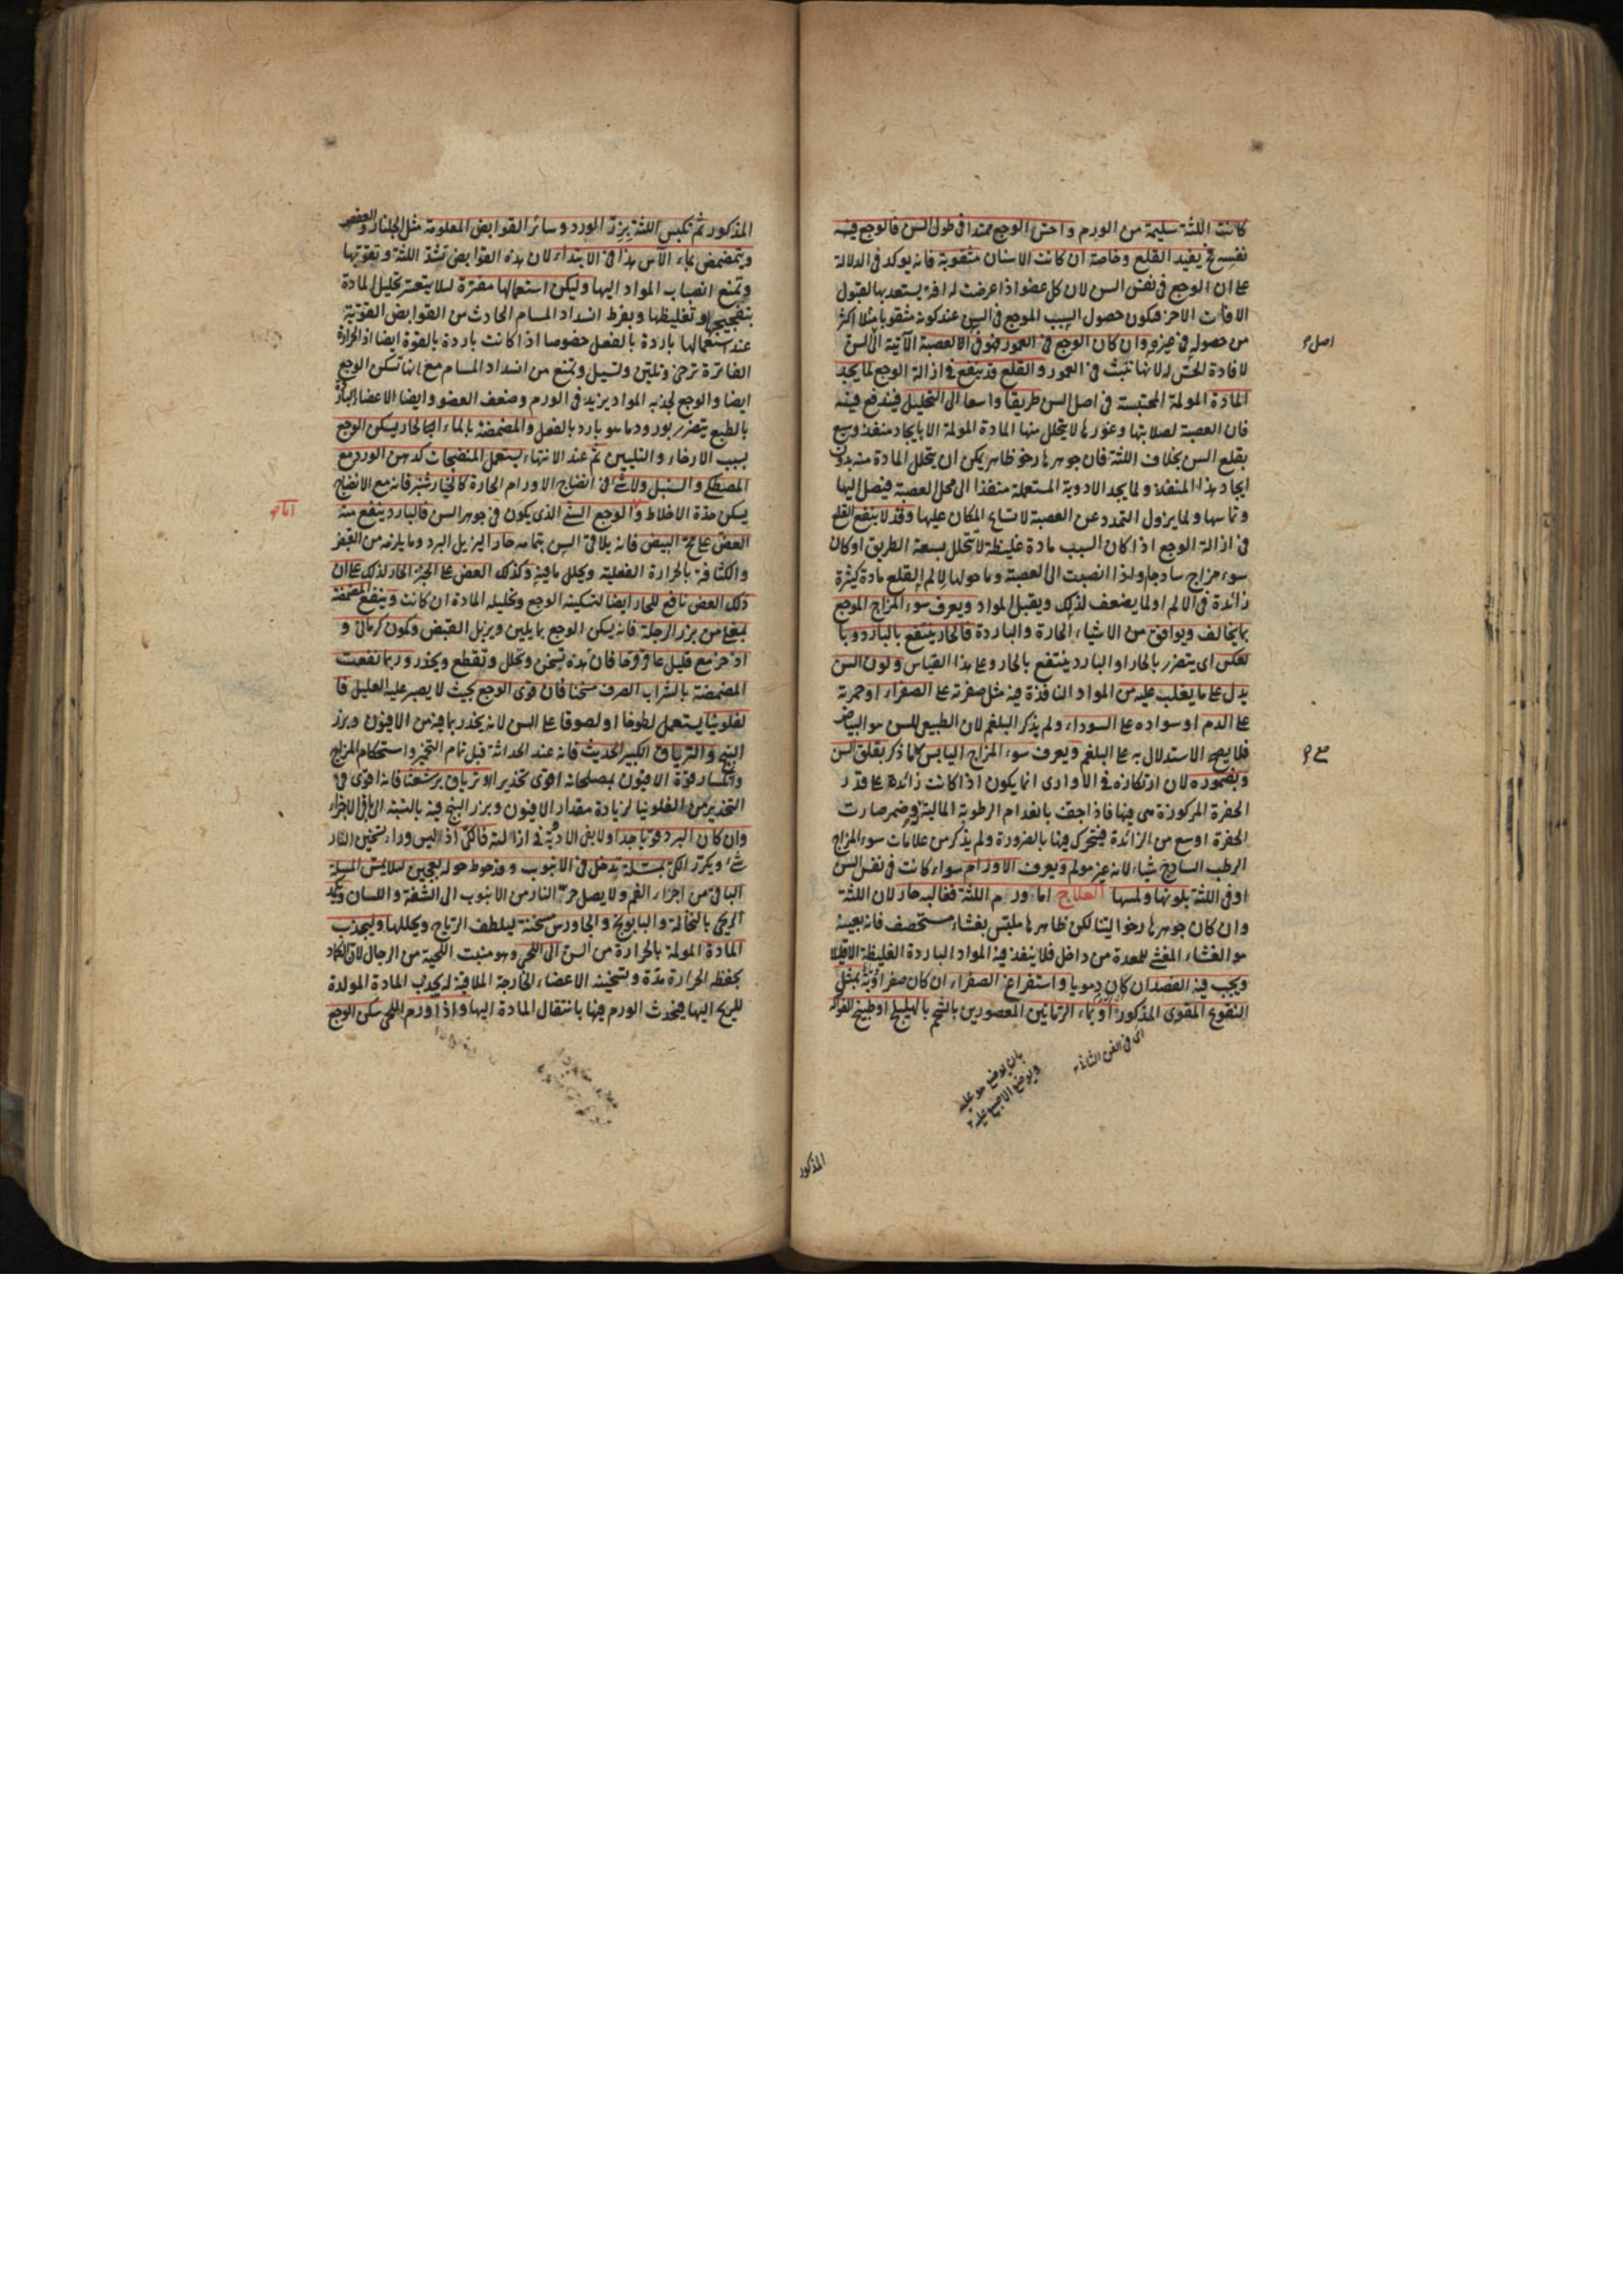 كانت اللثة سليمة من الورم واحس الوجع ممتدا فى طول السن فالوجع فيه
نفسه فح يفيد القلع وخاصة ان كانت الاسنان مثقوبة فانه يوكد فى الدلالة
على ان الوجع فى نفس السن لان كل عضو اذا عرضت له افة يستعد بها لقبول
الافات الاخر فيكون حصول السبب الموجع فى السن عند كونه مثقوبا مثلا اكثر
من حصوله فى غيره وان كان الوجع فى العمور فهو فى العصبة الآتية الى السن
اصل
لافادة الحس له لانها تنبث فى العمور والقلع قد ينفع فى ازالة الوجع لما يجد
المادة المولمة المحتبسة فى اصل السن طريقا واسعا الى التحليل فيندفع فيه
فان العصبة لصلابتها وغورها لا يتحلل منها المادة المولمة الا بايجاد منفذ وسيع
بقلع السن بخلاف اللثة فان جوهرها رخو ظاهر يمكن ان يتحلل المادة منه بدون
ايجاد هذا المنفذ ولما يجد الادوية المستعملة منفذا الى محل العصبة فيصل اليها
وتماسها ولما يزول التمدد عن العصبة لاتساع المكان عليها وقد لا ينفع القلع
فى ازالة الوجع اذا كان السبب مادة غليظة لا تتحلل بسعة الطريق او كان
سوء مزاج ساذجا ولذا انصبت الى العصبة وما حولها لالم القلع مادة كثيرة
زائدة فى الالم او لما يضعف لذلك ويقبل المواد ويعرف سوء المزاج الموجع
بما يخالف ويوافق من الاشياء الحارة والباردة فالحار ينتفع بالبارد وبا
لعكس اى يتضرر بالحار او البارد ينتفع بالحار وعلى هذا القياس ولون السن
يدل على ما يغلب عليه من المواد النافذة فيه مثل صفرته على الصفراء او حمرته
على الدم او سواده على السوداء ولم يذكر البلغم لان الطبيعى للسن هو البياض
فلا يصح الاستدلال به على البلغم ويعرف سوء المزاج اليابس كما ذكر بقلق السن
وبضموره لان ارتكازه فى الاوارى انما يكون اذا كانت زائدة على قدر
الحفرة المركوزة هى فيها فاذا جفت بانعدام الرطوبة المالية وضمر صارت
الحفرة اوسع من الزائدة فيتحرك فيها بالضرورة ولم يذكر من علامات سوء المزاج
الرطب الساذج شيئا لانه غير مولم ويعرف الاورام سواء كانت فى نفس السن
او فى اللثة بلونها ولمسها العلاج اما ورم اللثة فغالبه حار لان اللثة
وان كان جوهرها رخوا لينا لكن ظاهرها ملتبس بغشاء مستحصف فانه بعينه
هو الغشاء المغشى للمعدة من داخل فلا ينفذ فيه المواد الباردة الغليظة الا قليلا
ويجب فيه الفصد ان كان دمويا واستفراغ الصفراء ان كان صفراويا بمثل
النقوع المقوى المذكور او بماء الرمانين المعصورين بالشحم بالهليلج او طبيخ الفواكه
اى فى الفن الثانى
بان يوضع هو عليه
ويوضع الاصبع عليه
المذكور
المذكور ثم تكبس اللثة ببزر الورد وسائر القوابض المعلومة مثل الجلنار والعفص
ويتمضمض بماء الآس هذا فى الابتداء لان هذه القوابض تشد اللثة وتقويها
وتمنع انصباب المواد اليها وليكن استعمالها مفترة لئلا يتعسر تحليل المادة
بتفجيجها وتغليظها وبفرط انسداد المسام الحادث من القوابض القوية
عند استعمالها باردة بالفعل خصوصا اذا كانت باردة بالقوة ايضا اذ الحرارة
الفاترة ترخى وتلين وتسيل وتمنع من انسداد المسام مع انها تسكن الوجع
ايضا والوجع لجذبه المواد يزيد فى الورم وضعف العضو وايضا الاعضاء الباردة
بالطبع يتضرر بورود ما هو بارد بالفعل والمضمضة بالماء الحار يسكن الوجع
بسبب الارخاء والتليين ثم عند الانتهاء يستعمل المنضجات كدهن الورد مع
المصطكى والسنبل ولا شئ فى انضاج الاورام الحارة كالخيارشنبر فانه مع الانضاج
يسكن حدة الاخلاط والوجع السنى الذى يكون فى جوهر السن فالبارد ينفع منه
العض على مح البيض فانه يلاقى السن بتمامه حارا ليزيل البرد وما يلزمه من القبض
والكثافة بالحرارة الفعلية ويحلل ما فيه وكذلك العض على الخبز الحار لذلك على ان
ذلك العض نافع للحار ايضا لتسكينه الوجع وتحليله المادة ان كانت وينفع المضمضة
من بزر الرجلة فانه يسكن الوجع بما يلين ويزيل القبض وكمون كرمانى و
اذخر مع قليل عاقرقرحا فان هذه تسخن وتحلل وتقطع ويخدر وربما نفعت
المضمضة بالشراب الصرف مسخنا فان قوى الوجع بحيث لا يصبر عليه العليل فا
لفلونيا يستعمل لطوخا او لصوقا على السن لانه يخدر بما فيه من الافيون وبزر
البنج والترياق الكبير الحديث فانه عند الحداثة قبل تمام التخمر واستحكام المزاج
وانكسار قوة الافيون بمصلحاته اقوى تخديرا او ترياق برشعثا فانه اقوى فى
التخدير من الفلونيا لزيادة مقدار الافيون وبزر البنج فيه بالنسبة الى باقى الاجزاء
وان كان البرد قويا جدا ولا يفى الادوية فى ازالته فالكى اذ ليس وراء تسخين النار
شئ ويكرر الكى بمسلة تدخل فى الانبوب وقد حوط حوله بعجين لئلا يمس المسلة
الباقى من اجزاء الفم ولا يصل حر النار من الانبوب الى الشفة واللسان ويكمد
اللحى بالنخالة والبابونج والجاورس مسخنة ليلطف الرياح ويحللها ولينجذب
المادة المولمة بالحرارة من السن الى اللحى وهو منبت اللحية من الرجال لان الكماد
بحفظه الحرارة مدة وتسخينه الاعضاء الخارجة الملاقية له يجذب المادة المولدة
للريح اليها فيحدث الورم فيها بانتقال المادة اليها واذا ورم اللحى سكن الوجع